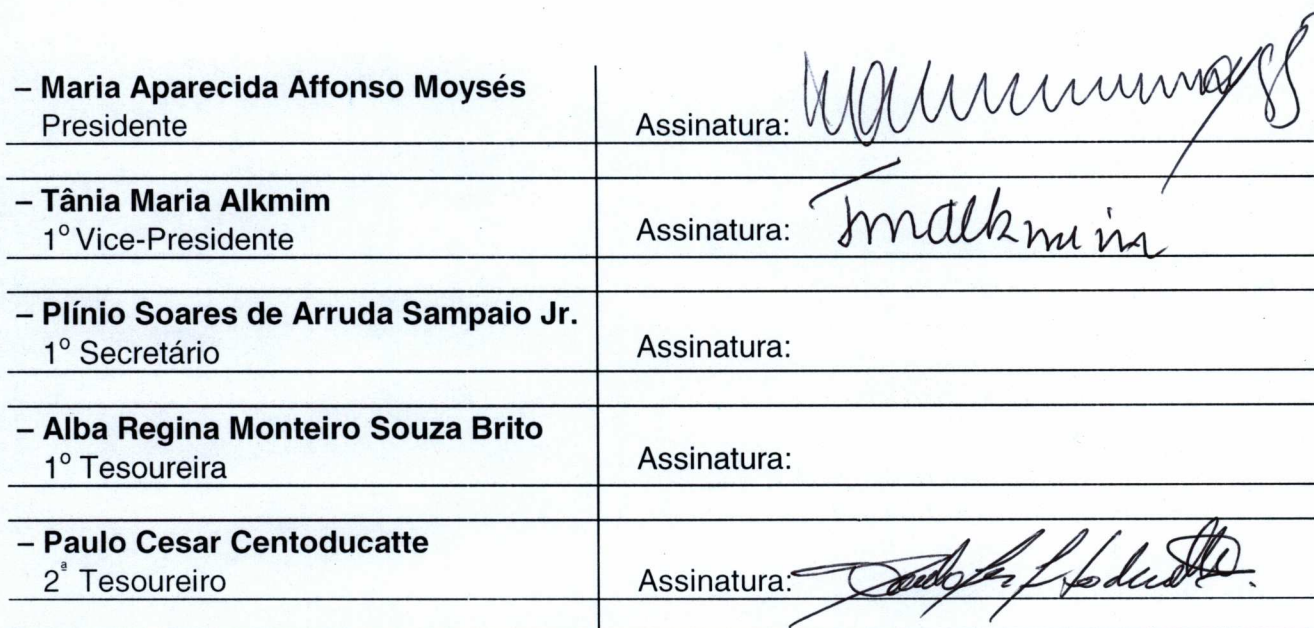 – Maria Aparecida Affonso Moysés
Presidente
Assinatura:
– Tânia Maria Alkmim
1º Vice-Presidente
Assinatura: Tmalkmim
– Plínio Soares de Arruda Sampaio Jr.
1º Secretário
Assinatura:
– Alba Regina Monteiro Souza Brito
1º Tesoureira
Assinatura:
– Paulo Cesar Centoducatte
2ª Tesoureiro
Assinatura: